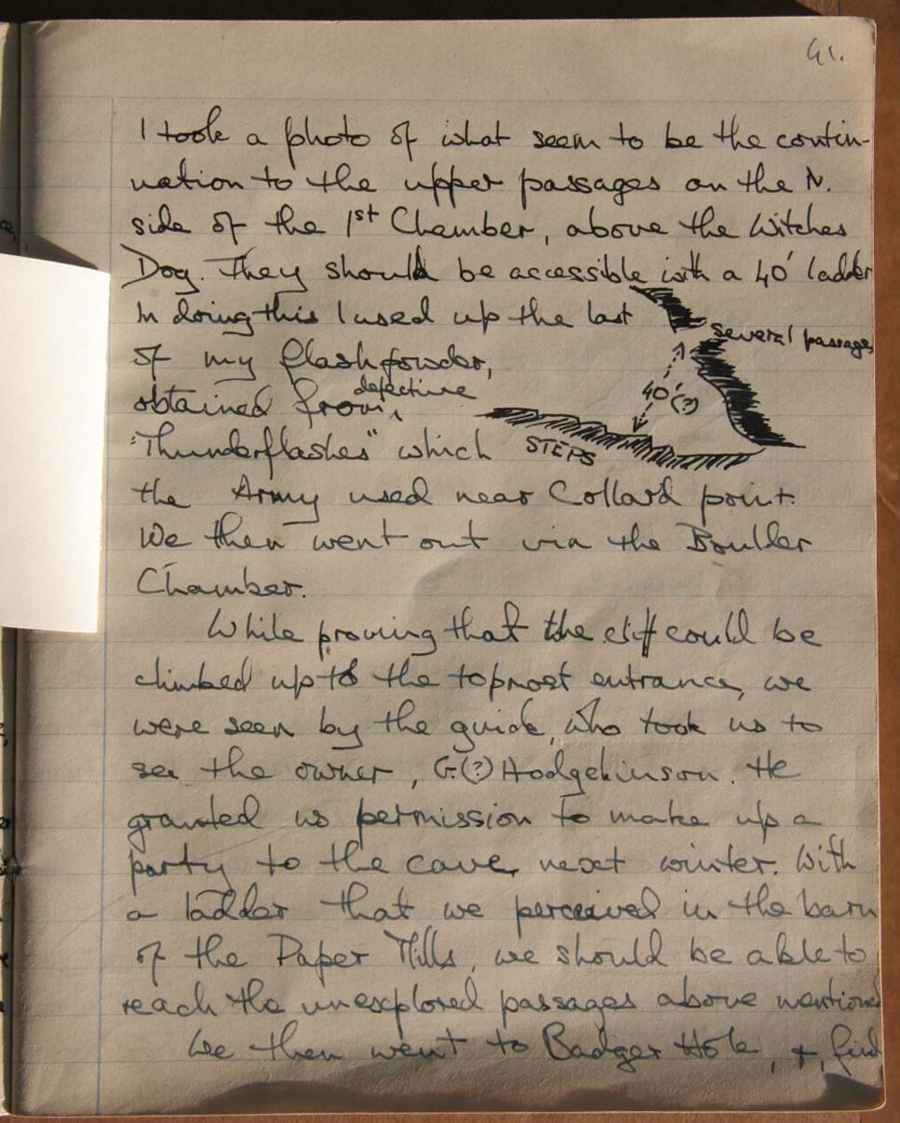 61.
I took a photo of what seem to be the contin-
uation to the upper passages on the N.
side of the 1st Chamber, above the Witches
Dog. They should be accessible with a 40' ladder
In doing this I used up the last
several passages
of my flashpowder,
40'(?)
defective
obtained from ‸
STEPS
"Thunderflashes" which
the Army used near Collard point.
We then went out via the Boulder
Chamber.
While proving that the cliff could be
climbed up to the topmost entrance, we
were seen by the guide, who took us to
see the owner, G.(?) Hodgekinson. He
granted us permission to make up a
party to the cave, next winter. With
a ladder that we perceived in the barn
of the Paper Mills, we should be able to
reach the unexplored passages above mentioned
We then went to Badger Hole, +, find